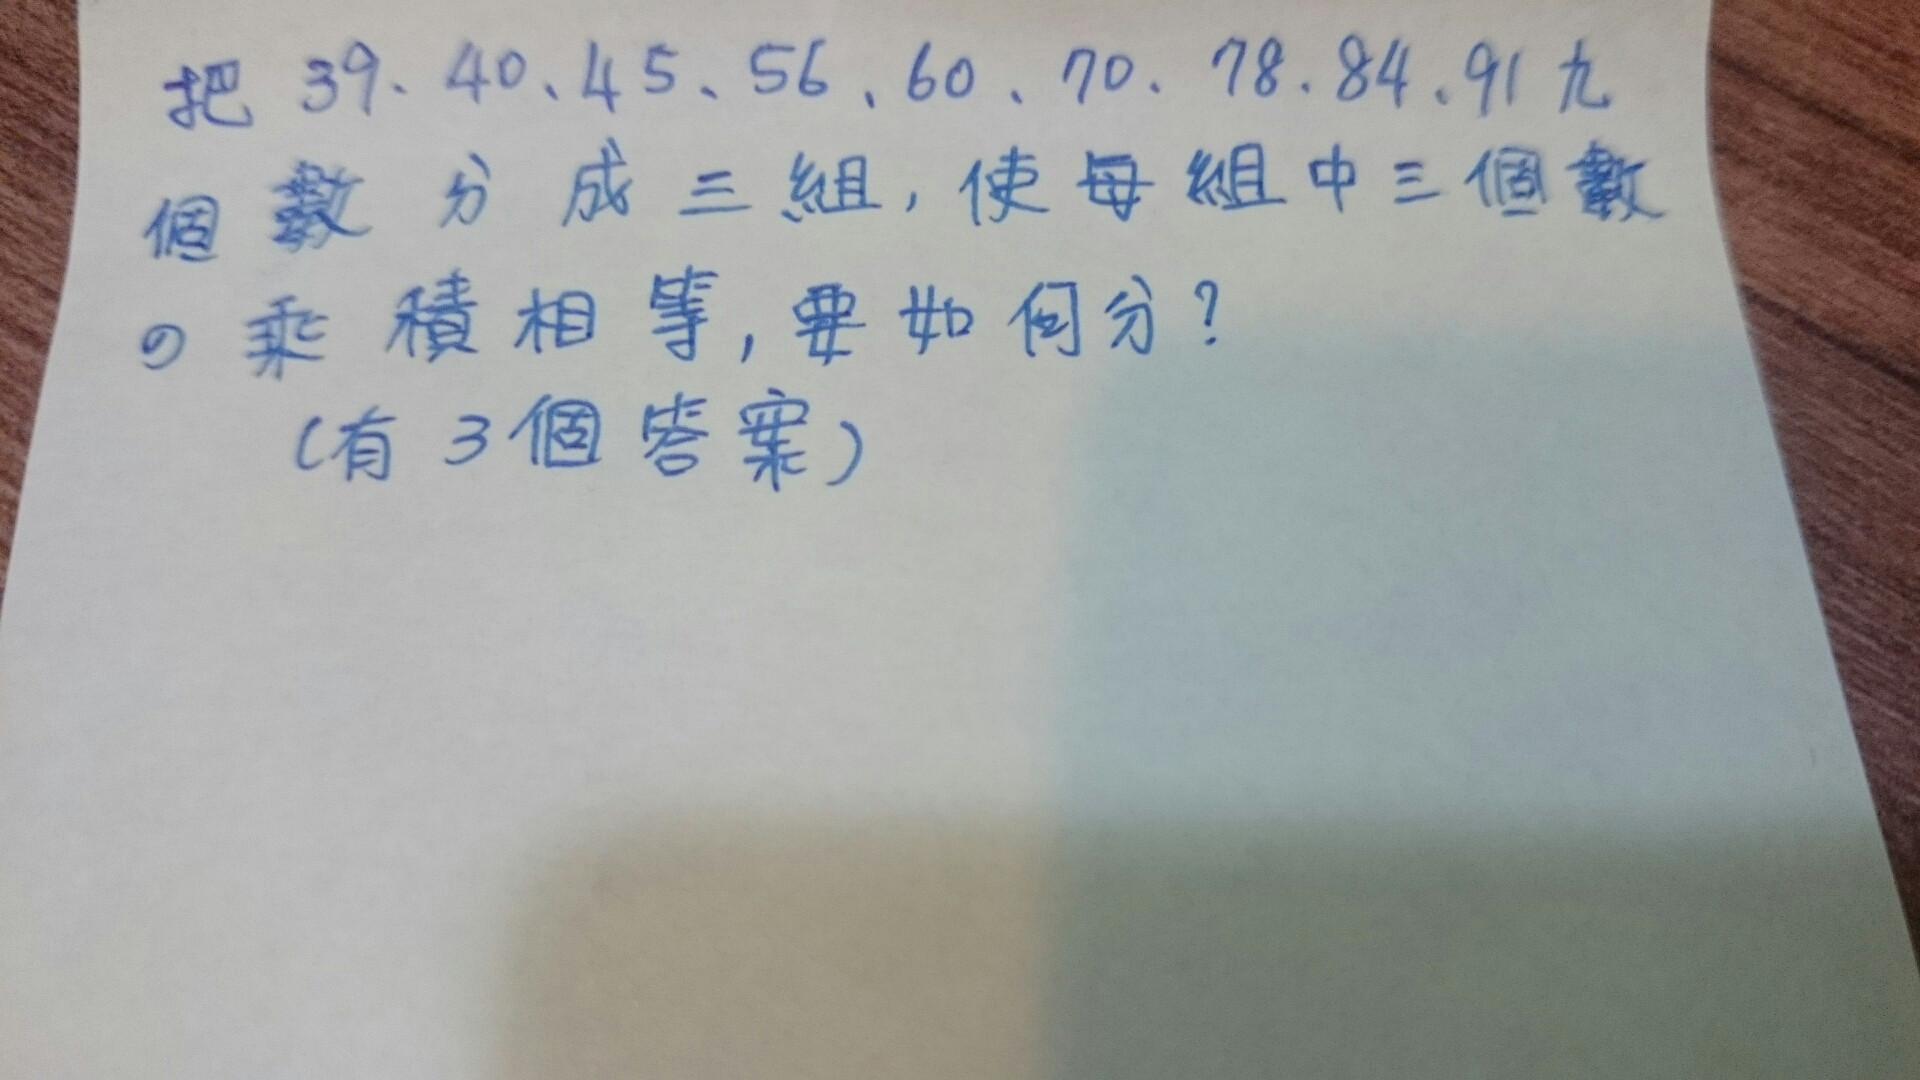 把 39、40、45、56、60、70、78、84、91 九
個數分成三組,使每組中三個數
の乘積相等,要如何分?
(有3個答案)